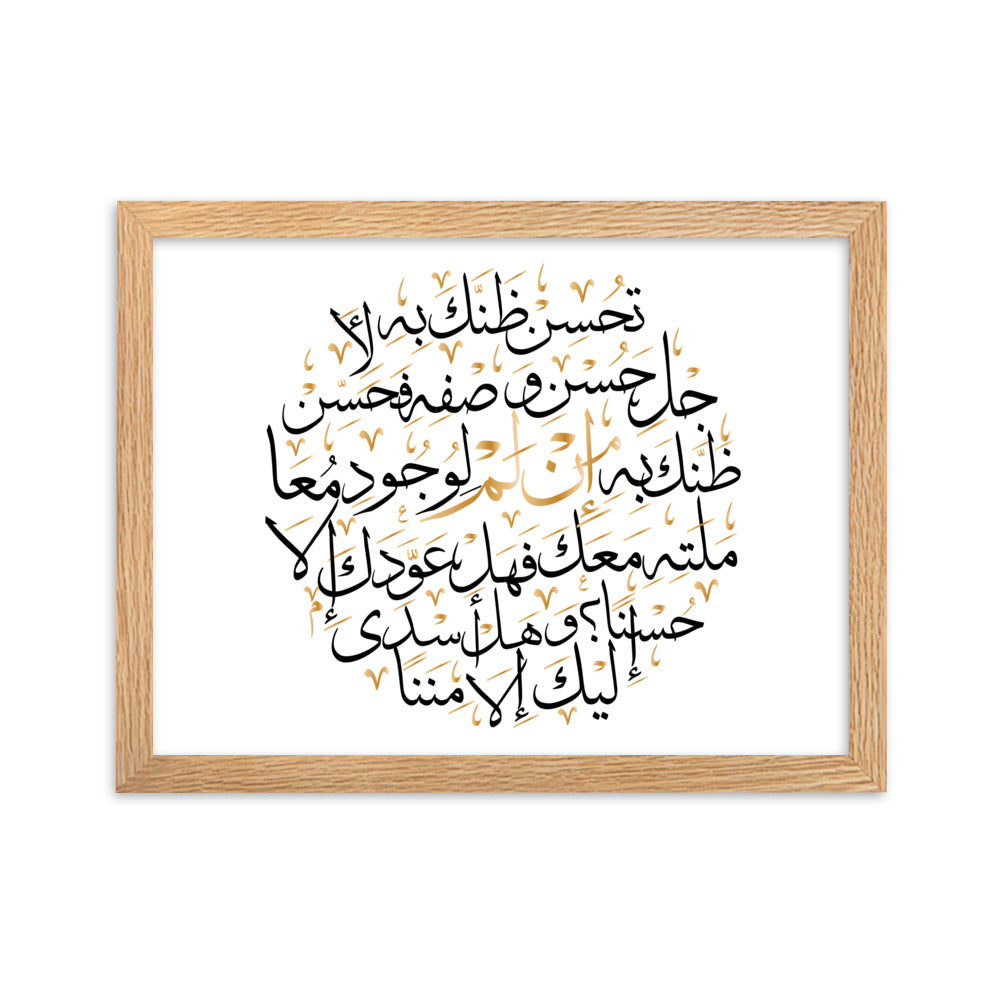 تُحسِن ظَنَّكَ بِهِ لِأَ
جْلِ حُسنِ وَصْفِهِ فَحَسِّن
ظَنَّكَ بِهِ إِنْ لَمْ لِوُجُودِ مُعَا
مَلَتِهِ مَعَكَ فَهَلْ عَوَّدَكَ إِلا
حُسْنًا؟ وَهَلْ أَسْدَى
إِلَيْكَ إِلا مِنَنًا